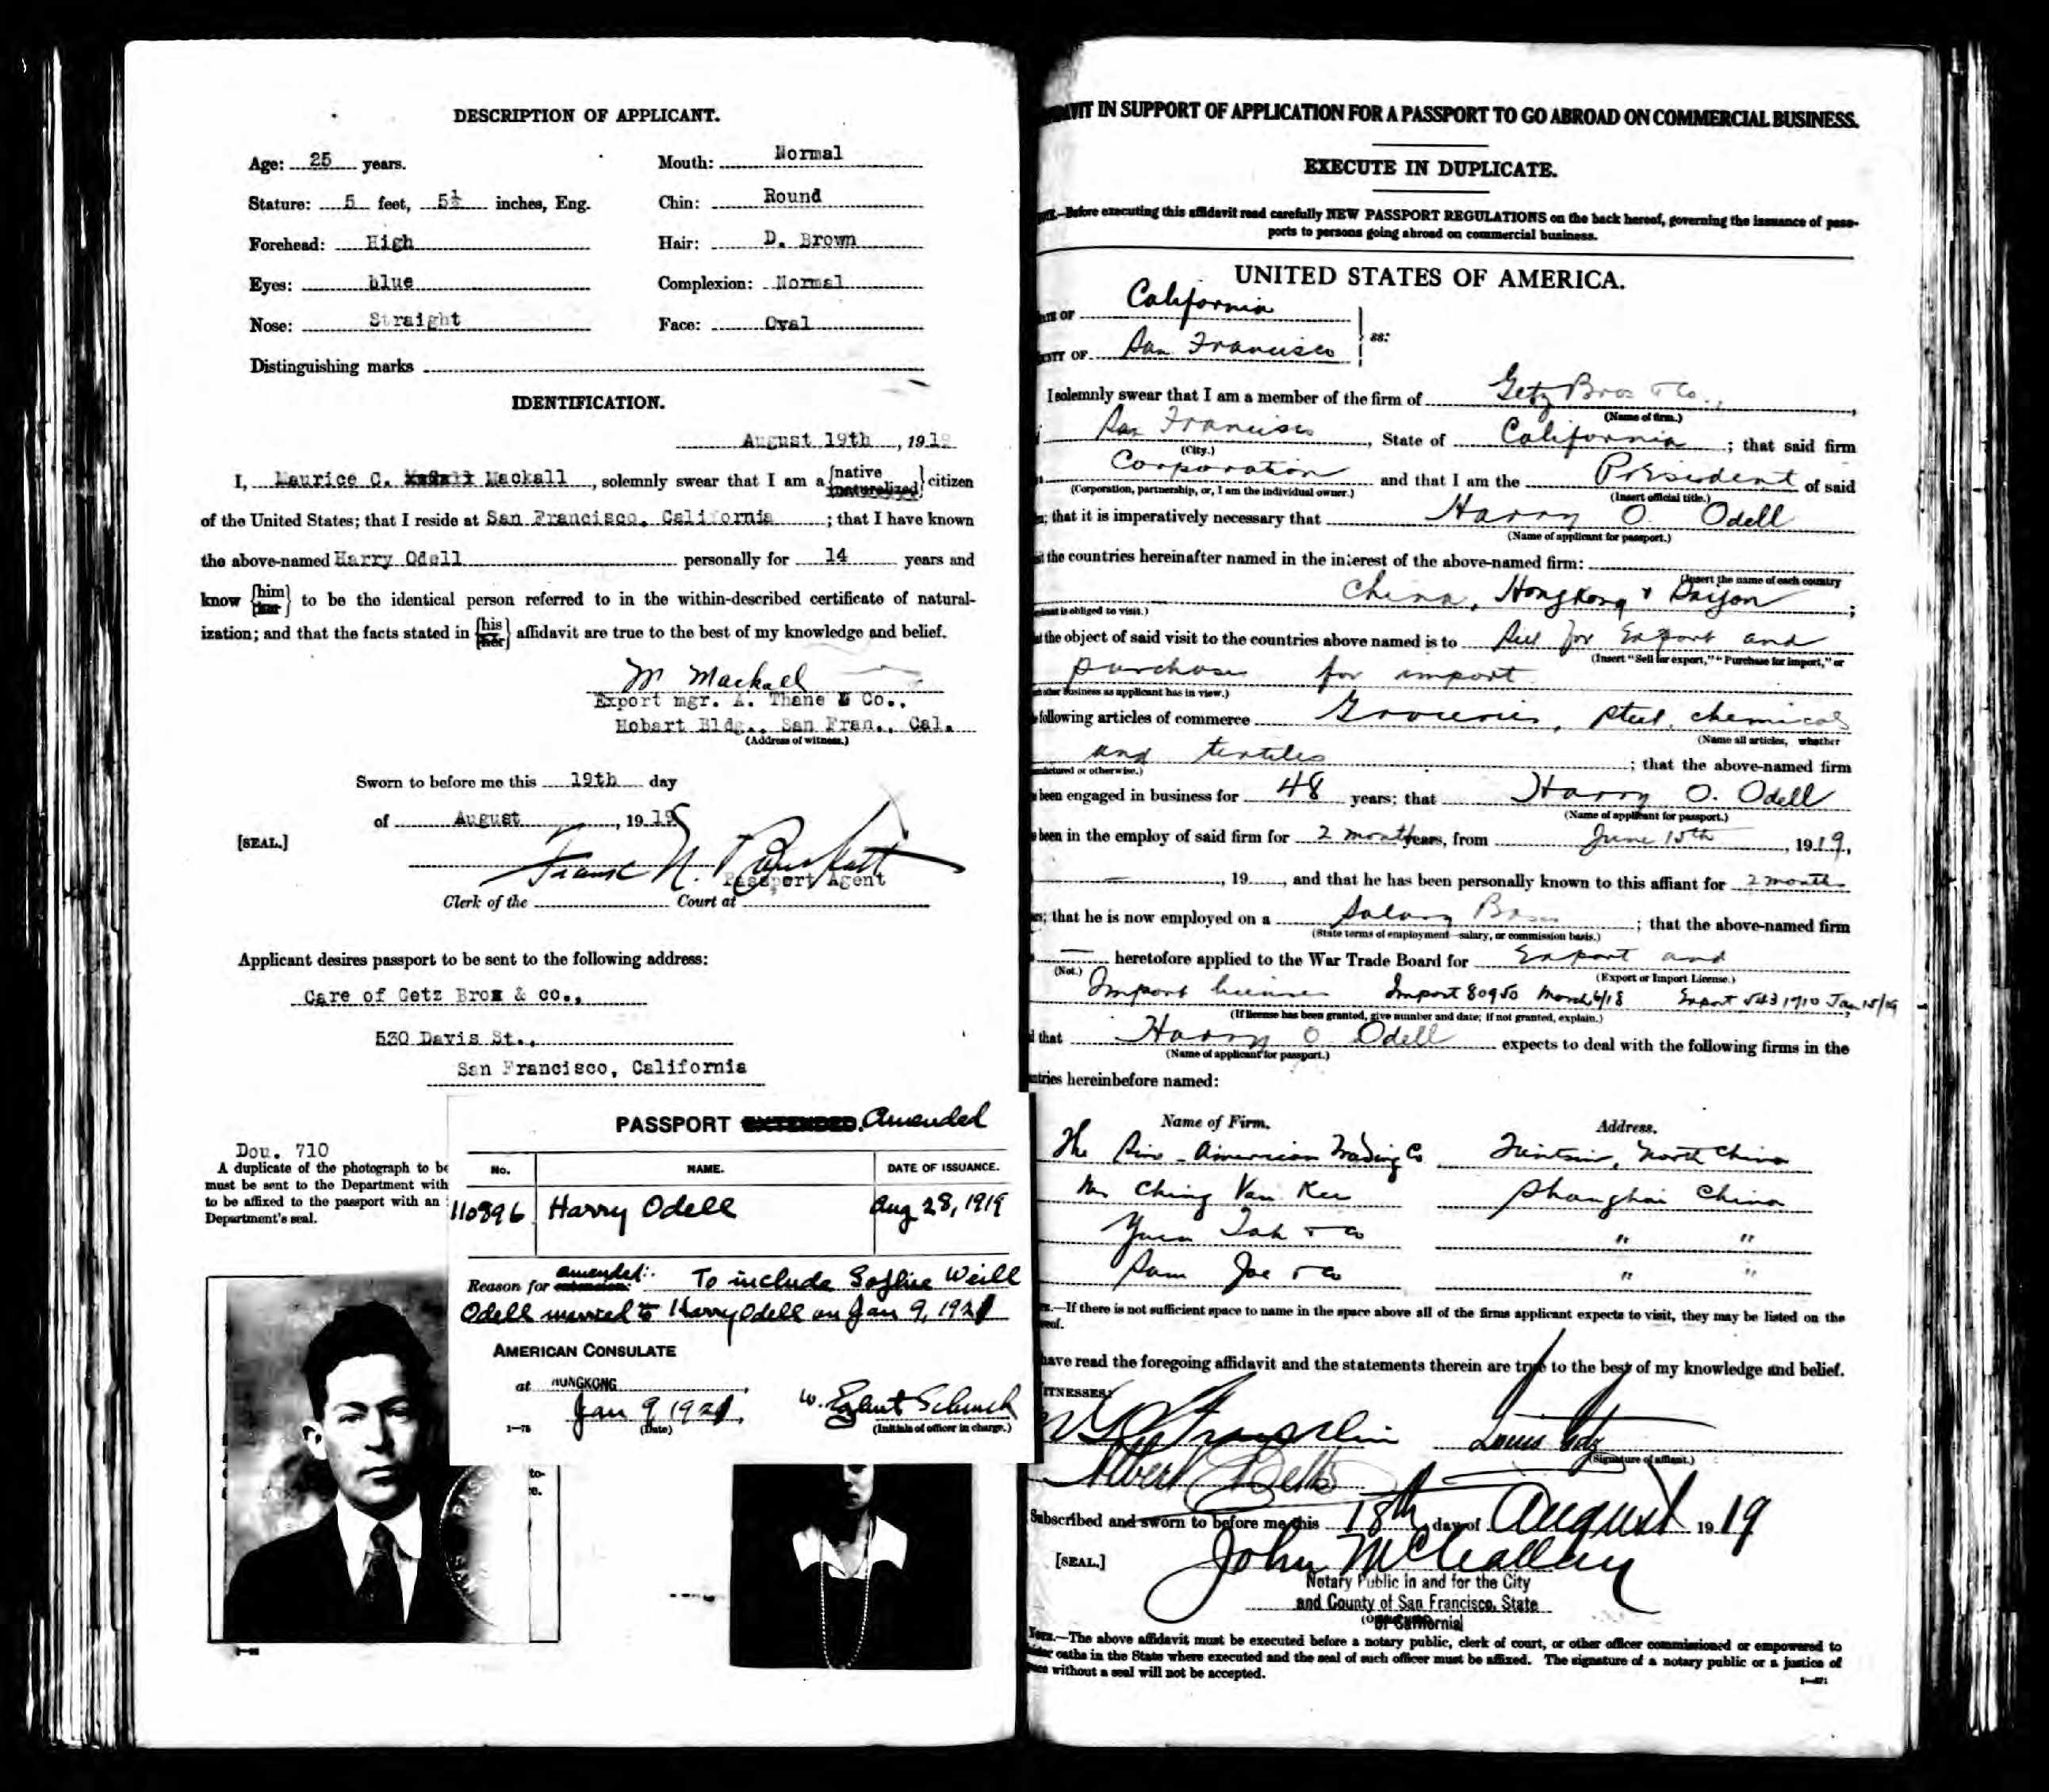 DESCRIPTION OF APPLICANT.
Age: 25 years. Mouth: Normal
Stature: 5 feet, 5½ inches, Eng. Chin: Round
Forehead: High Hair: D. Brown
Eyes: blue Complexion: Normal
Nose: Straight Face: Oval
Distinguishing marks
IDENTIFICATION.
August 19th, 1919
I, Maurice C. Mackall, solemnly swear that I am a {native naturalized} citizen
of the United States; that I reside at San Francisco, California; that I have known
the above-named Harry Odell personally for 14 years and
know {him her} to be the identical person referred to in the within-described certificate of natural-
ization; and that the facts stated in {his her} affidavit are true to the best of my knowledge and belief.
M Mackall
Export mgr. A. Thane & Co.,
Hobart Bldg., San Fran., Cal.
(Address of witness.)
Sworn to before me this 19th day
of August, 1919
[SEAL.]
Passport Agent
Clerk of the Court at
Applicant desires passport to be sent to the following address:
Care of Getz Bros & co.,
530 Davis St.,
San Francisco, California
Dou. 710
A duplicate of the photograph to be
must be sent to the Department with
to be affixed to the passport with an
Department's seal.
PASSPORT EXTENDED. Amended
No. NAME. DATE OF ISSUANCE.
110896 Harry Odell Aug 28, 1919
Reason for amended: To include Sophie Weill
Odell married to Harry Odell on Jan 9, 1921
AMERICAN CONSULATE
at HONGKONG
Jan 9 1921. W.
1—75 (Date) (Initials of officer in charge.)
to-
e.
AVIT IN SUPPORT OF APPLICATION FOR A PASSPORT TO GO ABROAD ON COMMERCIAL BUSINESS.
EXECUTE IN DUPLICATE.
—Before executing this affidavit read carefully NEW PASSPORT REGULATIONS on the back hereof, governing the issuance of pass-
ports to persons going abroad on commercial business.
UNITED STATES OF AMERICA.
OF California
ss:
OF San Francisco
I solemnly swear that I am a member of the firm of Getz Bros & Co.,
(Name of firm.)
San Francisco, State of California; that said firm
(City.)
Corporation and that I am the President of said
(Corporation, partnership, or, I am the individual owner.) (Insert official title.)
; that it is imperatively necessary that Harry O. Odell
(Name of applicant for passport.)
the countries hereinafter named in the interest of the above-named firm:
(Insert the name of each country
China, Hongkong &
is obliged to visit.)
the object of said visit to the countries above named is to Sell for Export and
(Insert "Sell for export," "Purchase for import," or
purchase for import
business as applicant has in view.)
following articles of commerce Groceries, steel, chemicals
(Name all articles, whether
and textiles; that the above-named firm
or otherwise.)
been engaged in business for 48 years; that Harry O. Odell
(Name of applicant for passport.)
been in the employ of said firm for 2 months years, from June 15th, 1919,
, 19, and that he has been personally known to this affiant for 2 months
; that he is now employed on a Salary Basis; that the above-named firm
(State terms of employment—salary, or commission basis.)
heretofore applied to the War Trade Board for Export and
(Not.) (Export or Import License.)
Import license Import 80950 March 6/18 Export Jan 15/19
(If license has been granted, give number and date; if not granted, explain.)
that Harry O Odell expects to deal with the following firms in the
(Name of applicant for passport.)
hereinbefore named:
Name of Firm. Address.
The Sino-American Trading Co Tientsin, North China
Ching Van Kee Shanghai China
Yuen Tah & Co " "
Sam Joe & Co " "
—If there is not sufficient space to name in the space above all of the firms applicant expects to visit, they may be listed on the
have read the foregoing affidavit and the statements therein are true to the best of my knowledge and belief.
WITNESSES:
Franklin Louis Getz
(Signature of affiant.)
Albert
Subscribed and sworn to before me this 18th day of August 1919
[SEAL.] John
Notary Public in and for the City
and County of San Francisco, State
of California
NOTE.—The above affidavit must be executed before a notary public, clerk of court, or other officer commissioned or empowered to
oaths in the State where executed and the seal of such officer must be affixed. The signature of a notary public or a justice of
without a seal will not be accepted.